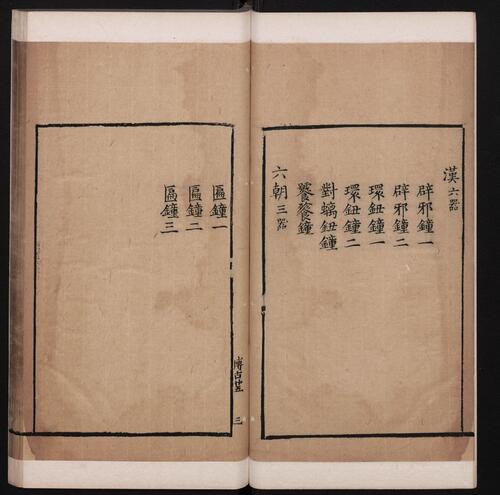 漢六器
辟邪鐘一
辟邪鐘二
環鈕鐘一
環鈕鐘二
對螭鈕鐘
饕餮鐘
六朝三器
匾鐘一
匾鐘二
匾鐘三
博古 三